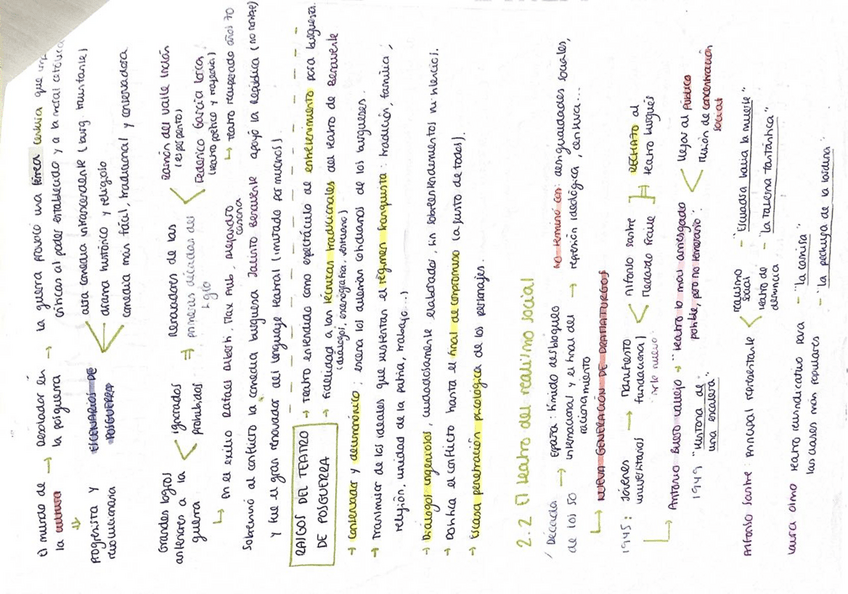 El mundo de la cultura → desolador en la posguerra → la guerra provocó una férrea censura que
críticas al poder establecido y a la moral católica
progresista y revolucionaria
ESCENARIOS DE POSGUERRA
alta comedia intrascendente (burg triunfante)
drama histórico y religioso
comedia más fácil, tradicional y conservadora
Grandes logros anteriores a la guerra
ignorados
prohibidos
⇒ Renovadores de las primeras décadas del siglo
Ramón del Valle Inclán (esperpento)
Federico García Lorca (teatro poético y tragedia)
↳ teatro recuperado años 70
↳ En el exilio Rafael Alberti, Max Aub, Alejandro Casona
Sobrevivió al conflicto la comedia burguesa Jacinto Benavente apoyó la República
y fue el gran renovador del lenguaje teatral (imitado por muchos)
RASGOS DEL TEATRO DE POSGUERRA
→ Teatro entendido como espectáculo de entretenimiento para burguesía.
→ Fidelidad a las técnicas tradicionales del teatro de Benavente
(diálogos, escenografía, vestuario)
→ Conservador y decimonónico: escena los salones cotidianos de los burgueses.
→ Transmisor de los ideales que sustentan el régimen franquista: tradición, familia,
religión, unidad de la patria, trabajo...)
→ Diálogos ingeniosos, cuidadosamente elaborados, sin sobreentendimientos ni silencios.
→ Positiva el conflicto hasta el final de compromiso (a gusto de todos).
→ Escasa penetración psicológica de los personajes.
2.2 El teatro del realismo social
Década de los 50 → España: tímido desbloqueo internacional y el final del racionamiento → No terminó con: desigualdades sociales, represión ideológica, censura...
↳ NUEVA GENERACIÓN DE DRAMATURGOS
1945: Jóvenes universitarios → Manifiesto fundacional
Arte nuevo
Alfonso Sastre
Medardo Fraile
RECHAZO al teatro burgués
↳ Antonio Buero Vallejo → "teatro lo más arriesgado posible, pero no temerario":
llegar al Público
misión de concentración social
1949 "Historia de una escalera"
Alfonso Sastre: principal representante
realismo social
teatro de denuncia
- "Escuadra hacia la muerte"
- "La taberna fantástica"
Laura Olmo teatro reivindicativo para las clases más populares
- "La camisa"
- "La pechuga de la sardina"